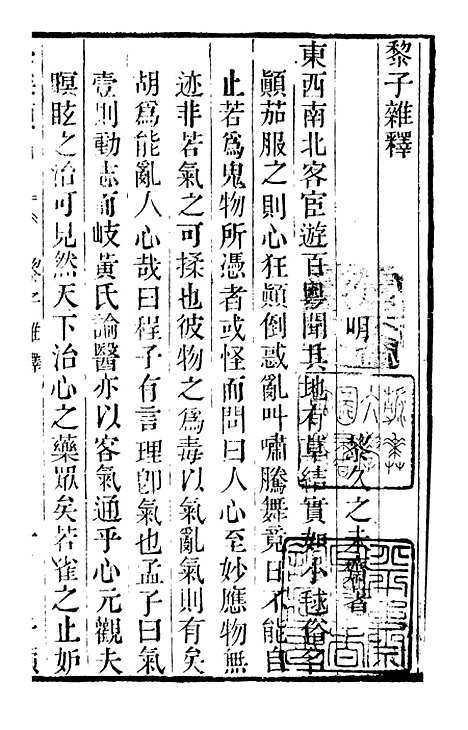 黎子雜釋
明 黎久之未齋著
東西南北客宦遊百粵聞其地有草結實如小毬俗名
顚茄服之則心狂顚倒惑亂叫嘯騰舞竟日不能自
止若爲鬼物所憑者或怪而問曰人心至妙應物無
迹非若氣之可揉也彼物之爲毒以氣亂氣則有矣
胡爲能亂人心哉曰程子有言理卽氣也孟子曰氣
壹則動志而岐黃氏論醫亦以客氣通乎心元觀夫
瞑眩之治可見然天下治心之藥眾矣若雀之止妒
黎子雜釋